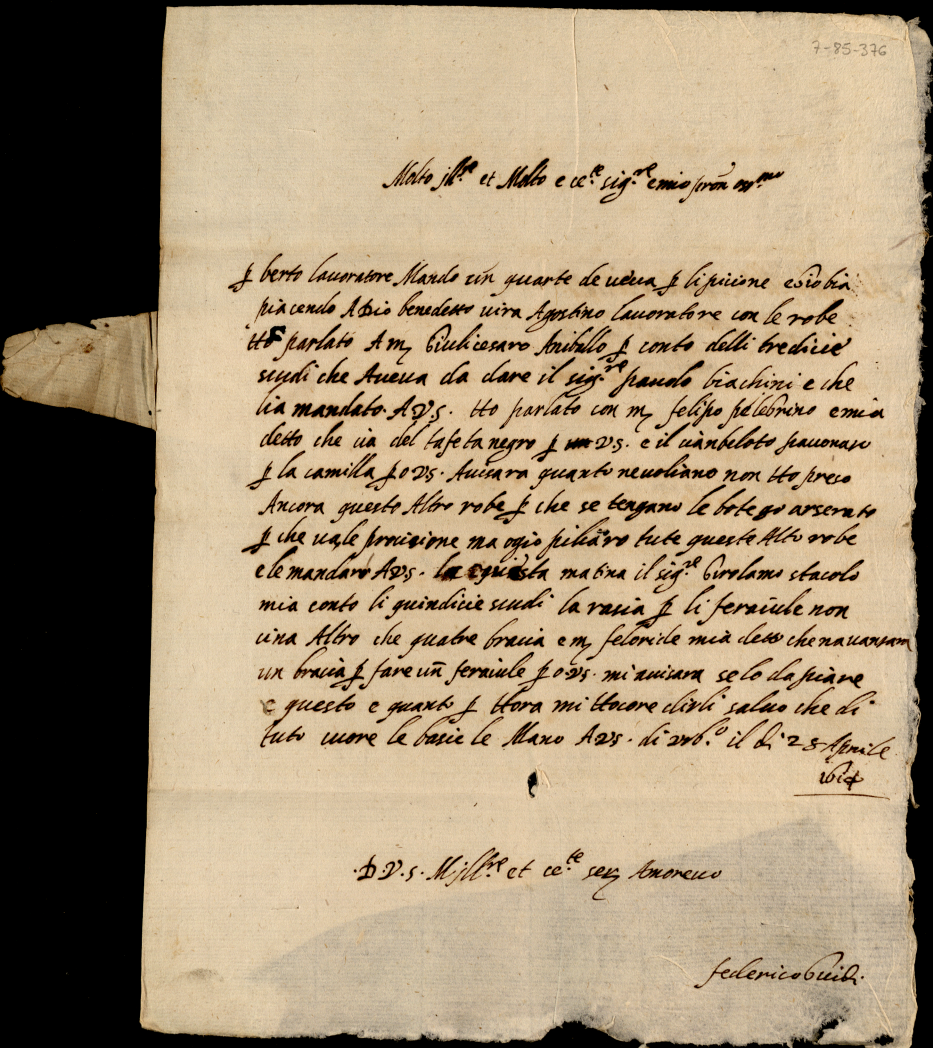 7-85-376
Molto jll.re et Molto e ce.te sig.re e mio prōn oss.mo
ꝑ berto lavoratore Mando un quarte de veva ꝑ li picione e Giobia
piacendo A Dio benedetto vira Agostino lavoratore con le robe
Ho parlato A m Giulicesaro Anibillo ꝑ conto delli tredicie
scudi che Aveva da dare il sig.re pavolo biachini e che
lia mandato. A V.S. Ho parlato con m felipo pelebrino e mia
detto che via del tafeta negro ꝑ VS. e il cianbeloto pavonaso
ꝑ la camilla ꝑ o VS. Avisara quanto ne voliano non Ho preso
Ancora questo Altro robe ꝑ che se tengano le botego arserato
ꝑ che va le procisione ma ogio piliaro tute queste Altro robe
e le mandaro A VS. la questa matina il sig.re Girolamo stacolo
mia conto li quindicie scudi la rasia ꝑ li feraiule non
cina Altro che quatre bracia e m feloride mia detto che navansam
un bracia ꝑ fare un feraiule ꝑ o VS. mi avisara se lo da piare
e questo e quanto ꝑ Hora mi Hocore dirli salvo che di
tuto cuore le basie le Mano A VS. di urb.o il di 28 Aprile
.D.V.S. M jll.re et ce.te ser Amorevo
federico Guidi.